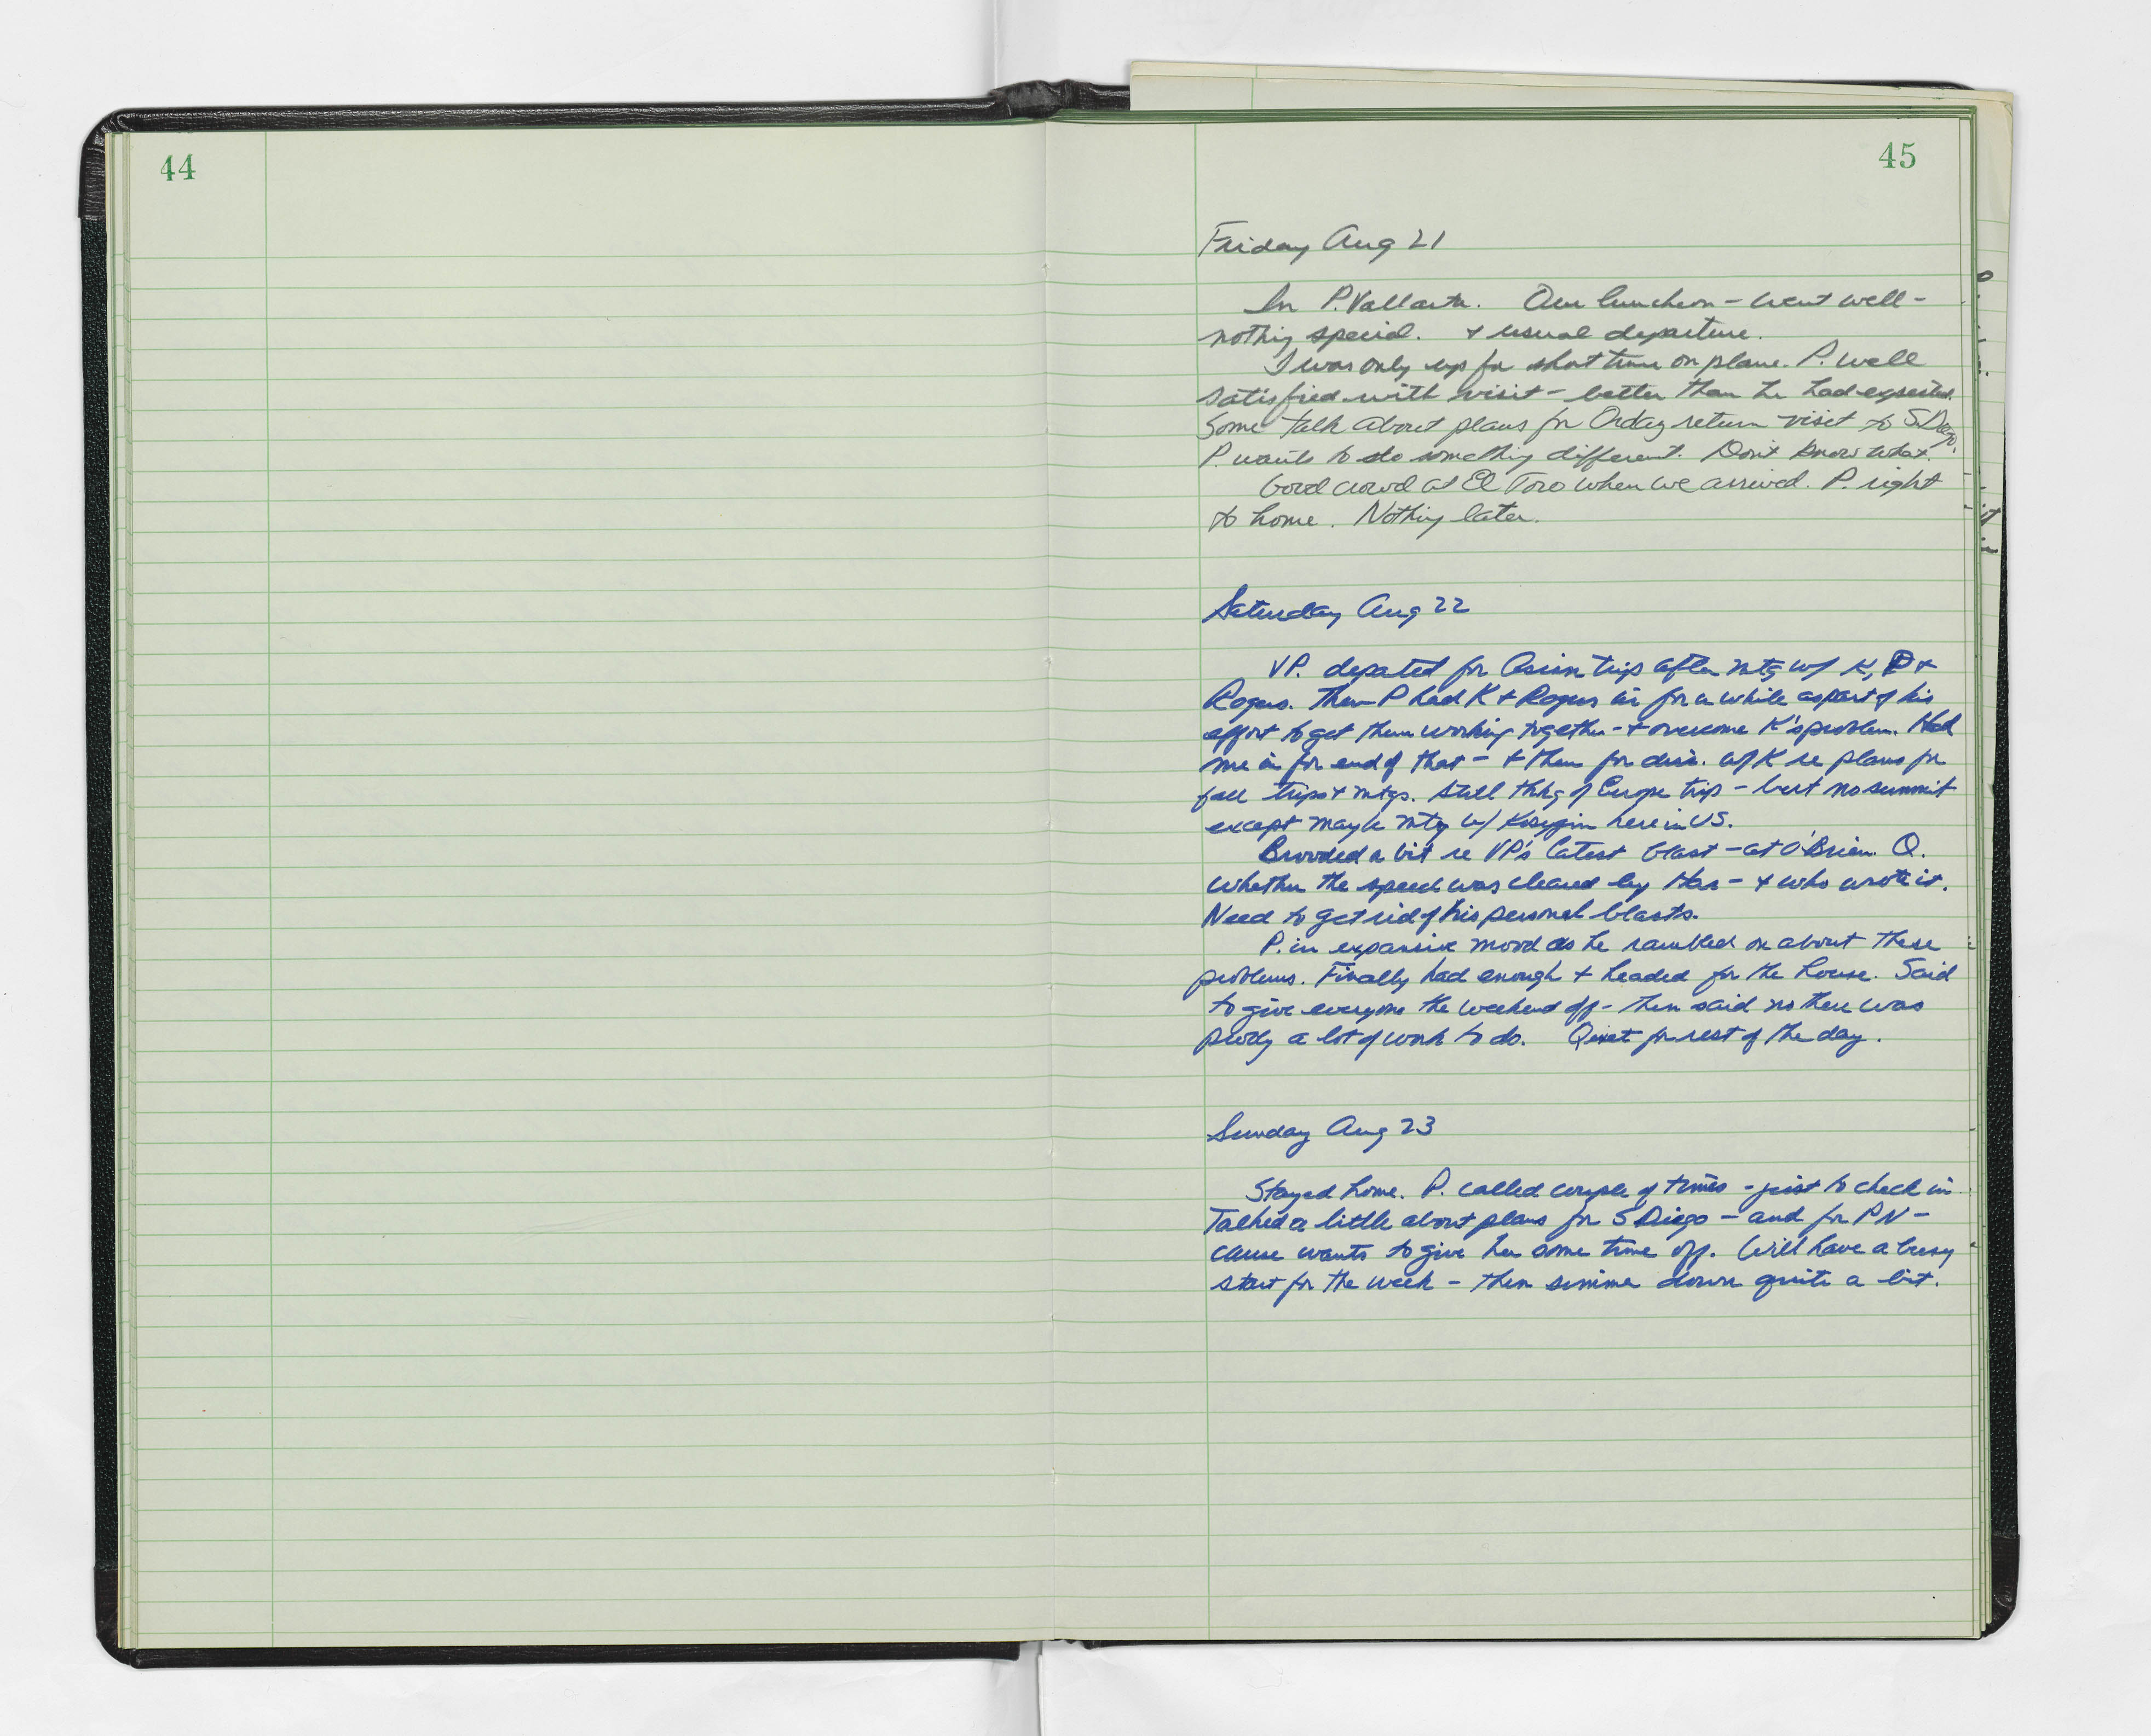 44
45
Friday Aug 21
In P. Vallarta. Our luncheon - went well -
nothing special. + usual departure.
I was only up for short time on plane. P. well
satisfied with visit - better than he had expected.
Some talk about plans for Ordaz return visit to S Diego.
P. wants to do something different. Don't know what.
Good crowd at El Toro when we arrived. P. right
to home. Nothing later.
Saturday Aug 22
VP. departed for Asian trip after mtg w/ K, P +
Rogers. Then P had K + Rogers in for a while as part of his
effort to get them working together - + overcome K's problem. Had
me in for end of that - + then for disc. w/ K re plans for
fall trips + mtgs. Still thkg of Europe trip - but no summit
except maybe mtg w/ Kosygin here in US.
Brooded a bit re VP's latest blast - at O'Brien. Q.
whether the speech was cleared by Har - + who wrote it.
Need to get rid of his personal blasts.
P. in expansive mood as he rambled on about these
problems. Finally had enough + headed for the house. Said
to give everyone the weekend off - then said no there was
probly a lot of work to do. Quiet for rest of the day.
Sunday Aug 23
Stayed home. P. called couple of times - just to check in.
Talked a little about plans for S Diego - and for PN -
cause wants to give her some time off. Will have a busy
start for the week - then simmer down quite a bit.